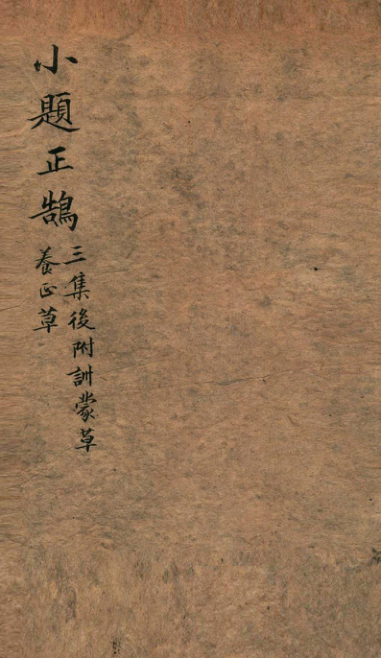 小題正鵠
三集後附訓蒙草
養正草